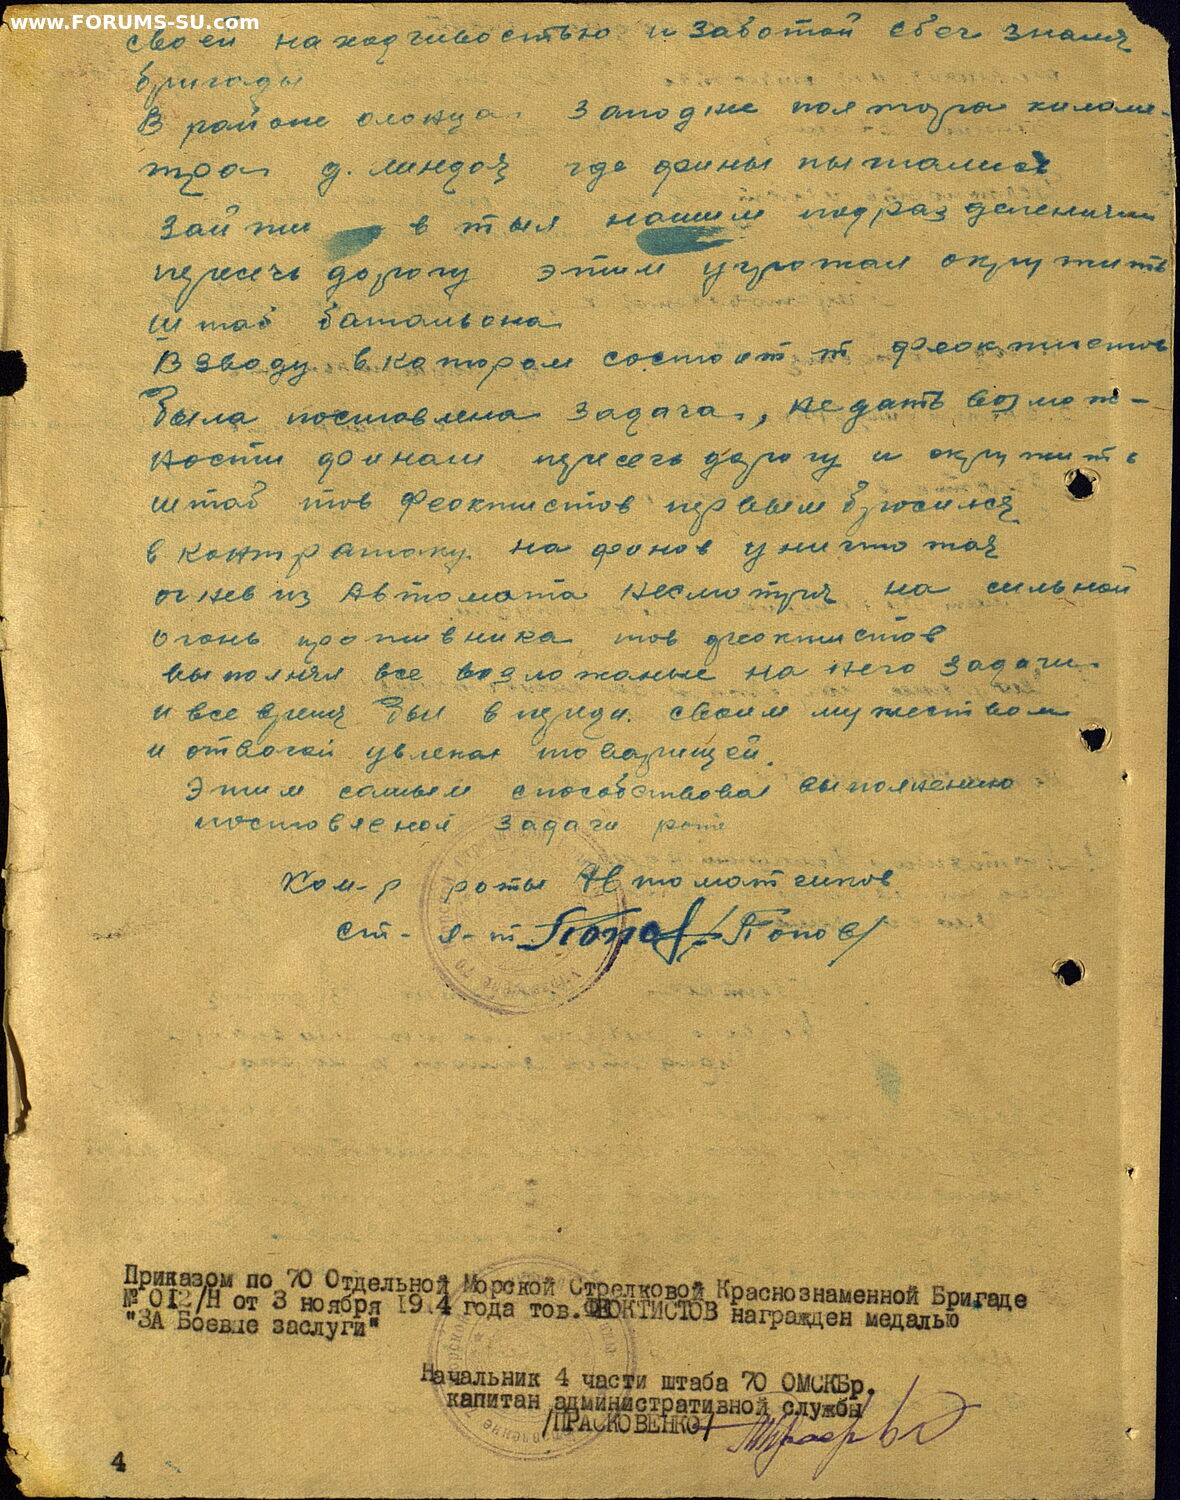 www.FORUMS-SU.com
своей находчивостью и заботой сбег знамя
бригады
В районе олонца западнее полтора киломе-
тра д. линдоя где финны пытались
зайти в тыл нашим подразделениям
пересечь дорогу этим угрожая окружить
штаб батальона
Взводу в котором состоит т феоктистов
была поставлена задача, не дать возмож-
ности финнам пересечь дорогу и окружить
штаб тов Феоктистов первым бросился
в контратаку на финов уничтожая
огнев из Автомата несмотря на сильной
огонь противника тов феоктистов
выполнял все возложаные на него задачи
и все время был впереди своим мужеством
и отвагой увлекая товарищей.
Этим самым способствовал выполнению
поставленой задачи роте
Ком-р роты Автоматчиков
ст- л-т Попов /Попов/
Приказом по 70 Отдельной Морской Стрелковой Краснознаменной Бригаде
№ 012/Н от 3 ноября 1944 года тов.ФЕОКТИСТОВ награжден медалью
"ЗА Боевые заслуги"
Начальник 4 части штаба 70 ОМСКБр.
капитан административной службы
/ПРАСКОВЕНКО/
4